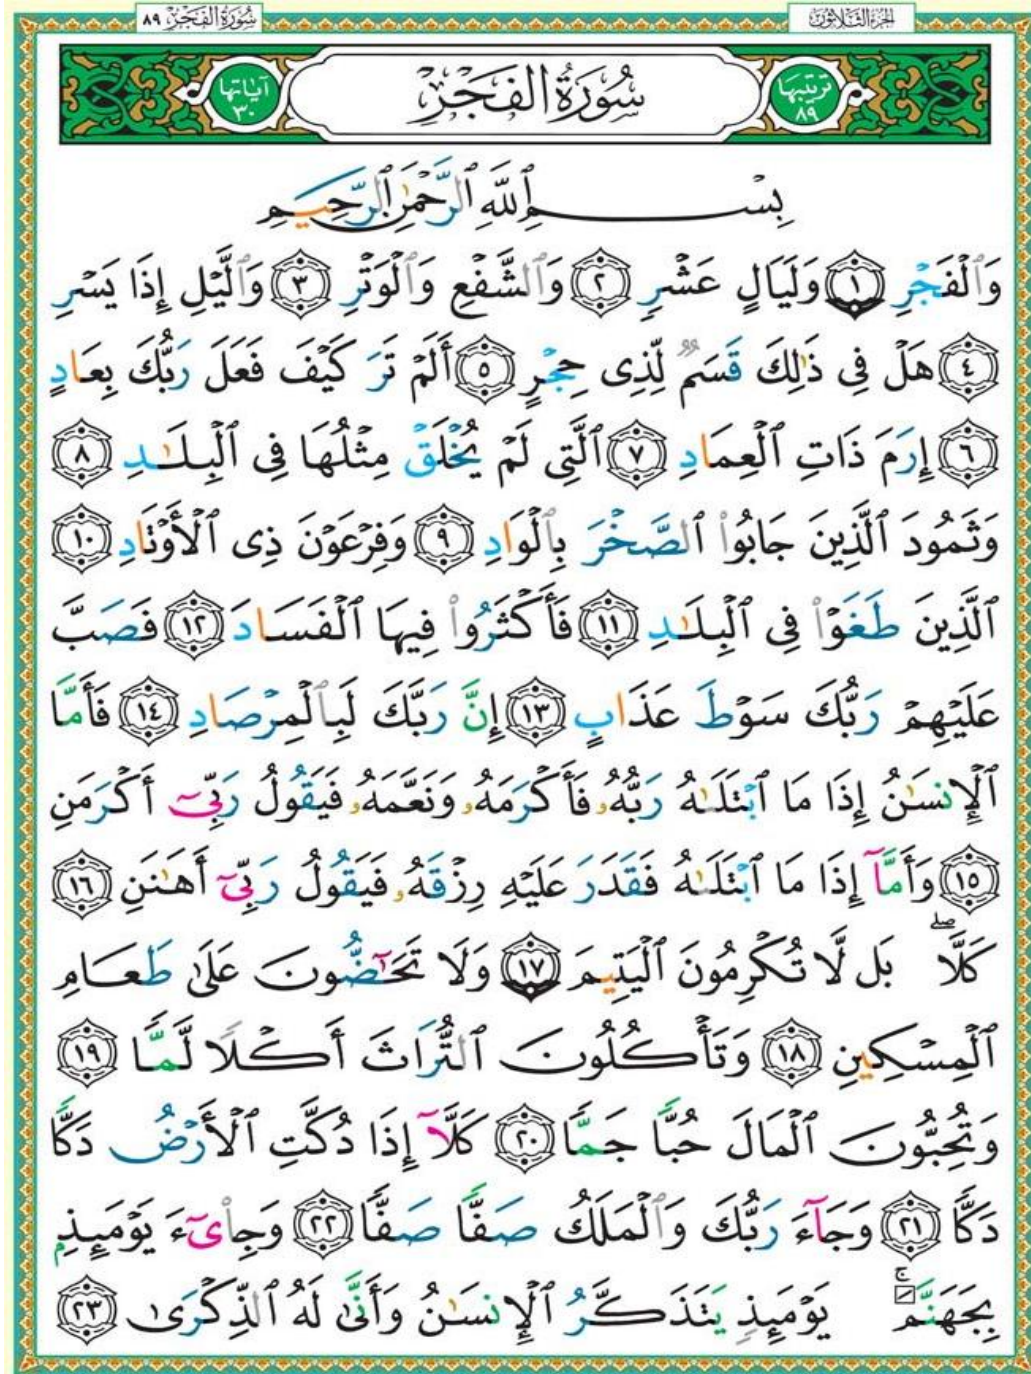 الجزء الثلاثون
سورة الفجر ٨٩
ترتيبها ٨٩
سُورَةُ الفَجْرِ
آياتها ٣٠
بِسْمِ ٱللَّهِ ٱلرَّحْمَٰنِ ٱلرَّحِيمِ
وَٱلْفَجْرِ ١ وَلَيَالٍ عَشْرٍ ٢ وَٱلشَّفْعِ وَٱلْوَتْرِ ٣ وَٱلَّيْلِ إِذَا يَسْرِ
٤ هَلْ فِى ذَٰلِكَ قَسَمٌ لِّذِى حِجْرٍ ٥ أَلَمْ تَرَ كَيْفَ فَعَلَ رَبُّكَ بِعَادٍ
٦ إِرَمَ ذَاتِ ٱلْعِمَادِ ٧ ٱلَّتِى لَمْ يُخْلَقْ مِثْلُهَا فِى ٱلْبِلَٰدِ ٨
وَثَمُودَ ٱلَّذِينَ جَابُوا۟ ٱلصَّخْرَ بِٱلْوَادِ ٩ وَفِرْعَوْنَ ذِى ٱلْأَوْتَادِ ١٠
ٱلَّذِينَ طَغَوْا۟ فِى ٱلْبِلَٰدِ ١١ فَأَكْثَرُوا۟ فِيهَا ٱلْفَسَادَ ١٢ فَصَبَّ
عَلَيْهِمْ رَبُّكَ سَوْطَ عَذَابٍ ١٣ إِنَّ رَبَّكَ لَبِٱلْمِرْصَادِ ١٤ فَأَمَّا
ٱلْإِنسَٰنُ إِذَا مَا ٱبْتَلَىٰهُ رَبُّهُۥ فَأَكْرَمَهُۥ وَنَعَّمَهُۥ فَيَقُولُ رَبِّىٓ أَكْرَمَنِ
١٥ وَأَمَّآ إِذَا مَا ٱبْتَلَىٰهُ فَقَدَرَ عَلَيْهِ رِزْقَهُۥ فَيَقُولُ رَبِّىٓ أَهَٰنَنِ ١٦
كَلَّا ۖ بَل لَّا تُكْرِمُونَ ٱلْيَتِيمَ ١٧ وَلَا تَحَٰٓضُّونَ عَلَىٰ طَعَامِ
ٱلْمِسْكِينِ ١٨ وَتَأْكُلُونَ ٱلتُّرَاثَ أَكْلًا لَّمًّا ١٩
وَتُحِبُّونَ ٱلْمَالَ حُبًّا جَمًّا ٢٠ كَلَّآ إِذَا دُكَّتِ ٱلْأَرْضُ دَكًّا
دَكًّا ٢١ وَجَآءَ رَبُّكَ وَٱلْمَلَكُ صَفًّا صَفًّا ٢٢ وَجِا۟ىٓءَ يَوْمَئِذٍۭ
بِجَهَنَّمَ ۚ يَوْمَئِذٍ يَتَذَكَّرُ ٱلْإِنسَٰنُ وَأَنَّىٰ لَهُ ٱلذِّكْرَىٰ ٢٣